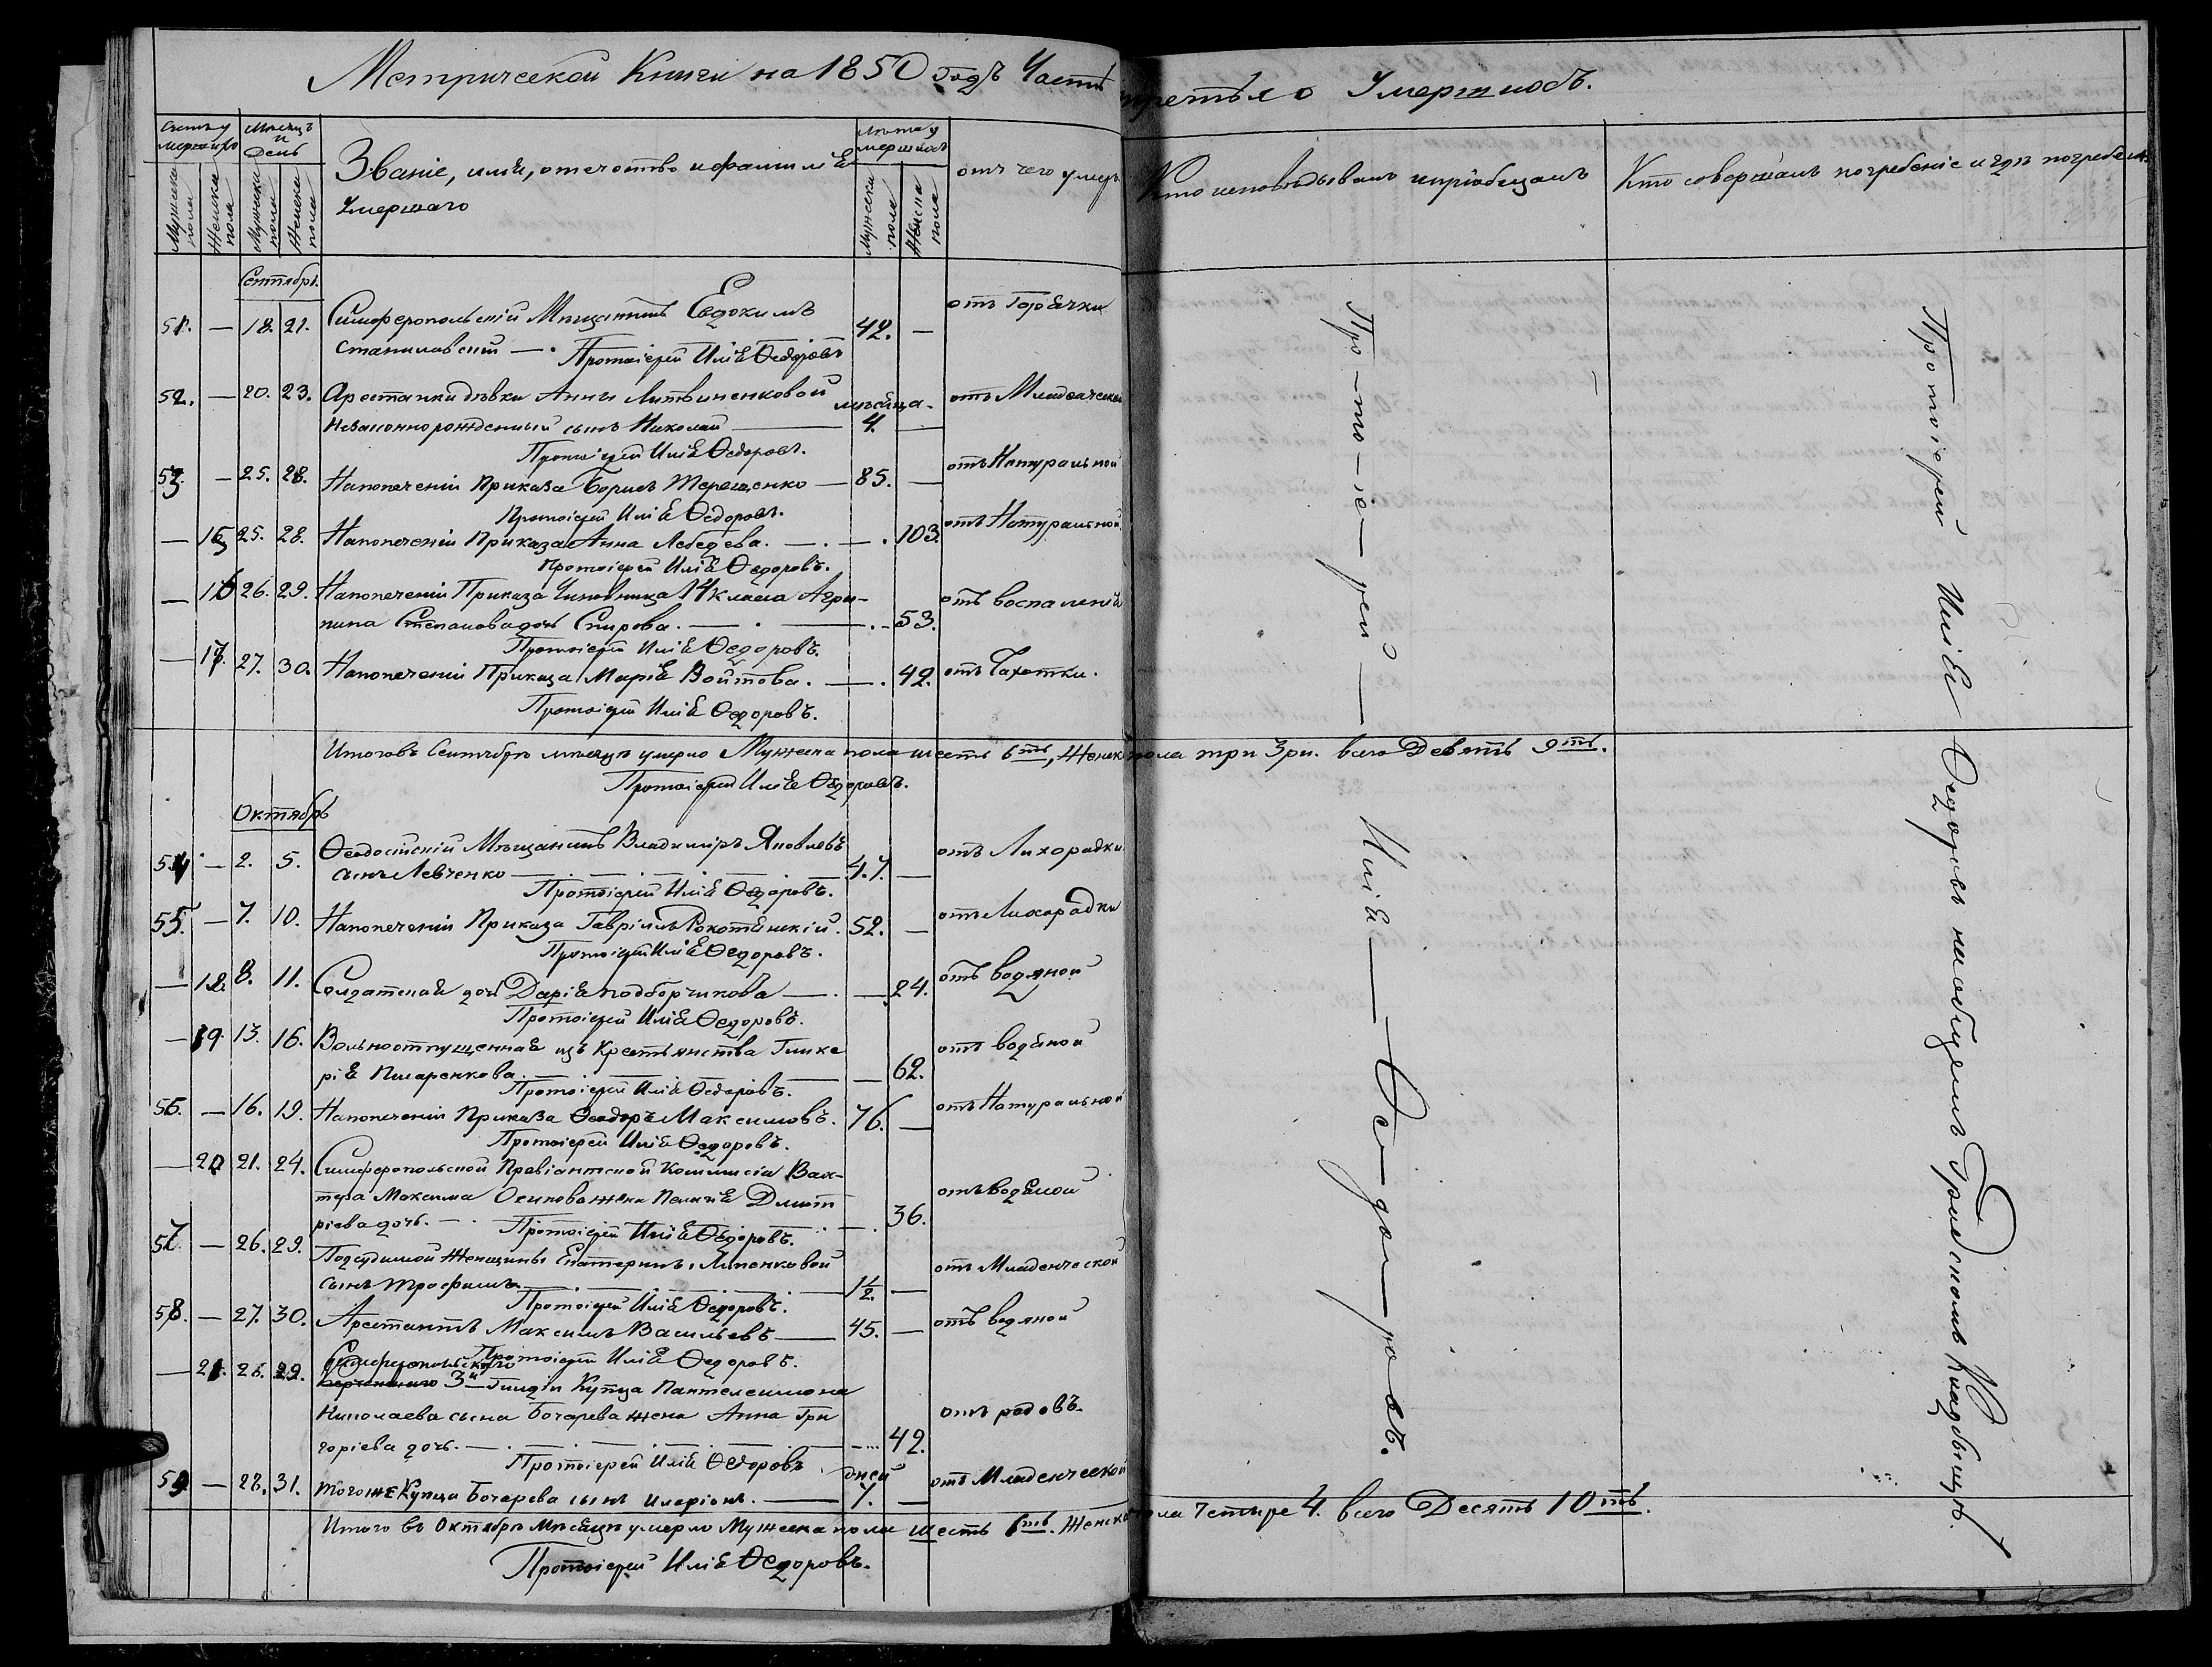 Метрической Книги на 1850 годъ Часть третья о Умершихъ.
Счетъ умершихъ
Мужеска пола
Женска пола
Месяцъ и День
Мужеска пола
Женска пола
Званіе, имя, отечество и фамилія
Умершаго
Лета умершихъ
Мужеска пола
Женска пола
отъ чего умеръ
Кто исповѣдывалъ и пріобщалъ
Кто совершалъ погребеніе и гдѣ погребены
Сентябрь.
51. — 18. 21. Симферопольскій Мѣщанинъ Евдокимъ
Станиславскій — . 42. — отъ Горячки
Протоіерей Илія Ѳедоровъ
52. — 20. 23. Арестанки дѣвки Анны Литвиненковой месяца. отъ Младенческой
Незаконнорожденный сынъ Николай — 4. —
Протоіерей Илія Ѳедоровъ.
53. — 25. 28. Напопеченіи Приказа Борисъ Терещенко — 85. — отъ Натуральной
Протоіерей Илія Ѳедоровъ.
— 15 25. 28. Напопеченіи Приказа Анна Лебедева. — . — . 103. отъ Натуральной
Протоіерей Илія Ѳедоровъ.
— 16 26. 29. Напопеченіи Приказа Чиновница 14 класса Агри-
пина Степанова дочь Спирова. — . — . - 53. отъ воспаленія
Протоіерей Илія Ѳедоровъ.
— 17. 27. 30. Напопеченіи Приказа Марія Войтова. — . 42. отъ Чахотки.
Протоіерей Илія Ѳедоровъ.
Итоговъ Сентябрѣ мѣсяцѣ умерло Мужеска пола шесть 6ть, Женска пола три 3ри. всего Девять 9ть.
Протоіерей Илія Ѳедоровъ.
Октябрь
54. — 2. 5. Ѳеодосійскій Мѣщанинъ Владимиръ Яковлевъ
сынъ Левченко — 47. — отъ Лихорадки
Протоіерей Илія Ѳедоровъ.
55. — 7. 10. Напопеченіи Приказа Гавріилъ Рокотянскій. 52. — отъ Лихорадки
Протоіерей Илія Ѳедоровъ.
— 18. 8. 11. Солдатская дочь Дарія Подборчикова — . — 24. отъ водяной
Протоіерей Илія Ѳедоровъ.
— 19. 13. 16. Вольноотпущенная изъ Крестьянства Глике
рія Писаренкова. — 62. отъ водяной
Протоіерей Илія Ѳедоровъ.
56. — 16. 19. Напопеченіи Приказа Ѳеодоръ Максимовъ. 76. — отъ Натуральной
Протоіерей Илія Ѳедоровъ.
— 20 21. 24. Симферопольской Правіантской Коммисіи Вах-
тера Максима Осипова жена Пелагія Дмит
ріева дочь. — . 36. отъ водяной
Протоіерей Илія Ѳедоровъ.
57. — 26. 29. Подсудимой Женщины Екатерины Липенковой
сынъ Трофимъ. — 1/2. — отъ Младенческой
Протоіерей Илія Ѳедоровъ.
58. — 27. 30. Арестантъ Максимъ Васильевъ — 45. — отъ водяной
Протоіерей Илія Ѳедоровъ.
— 21. 26. 29. Симферопольскаго
3й Гилдіи Купца Пантелеимона
Николаева сына Бочарева жена Анна Гри
горіева дочь. — 42. отъ родовъ.
Протоіерей Илія Ѳедоровъ
59 — 28. 31. Тогоже Купца Бочарева сынъ Иларіонъ. — дней 7. — отъ Младенческой
Итого въ Октябрѣ Месяцѣ умерло Мужеска пола шесть 6ть. Женска пола Четыре 4. всего Десять 10ть.
Протоіерей Илія Ѳедоровъ.
Про—то—іе—рей — Илія — Ѳе—до—ровъ.
Протоіерей Илія Ѳедоровъ на общемъ Градскомъ Кладбищѣ.